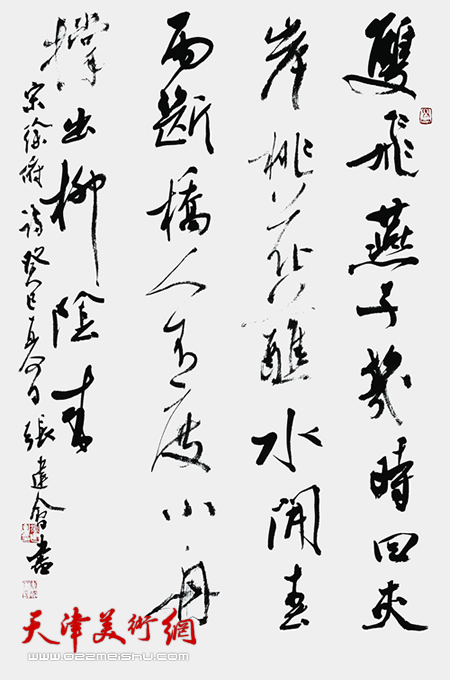 雙飛燕子幾時回夾
岸桃花蘸水開春
雨斷橋人不度小舟
撐出柳陰來
宋徐俯詩癸巳夏日張建會書
天津美術網
www.022meishu.com